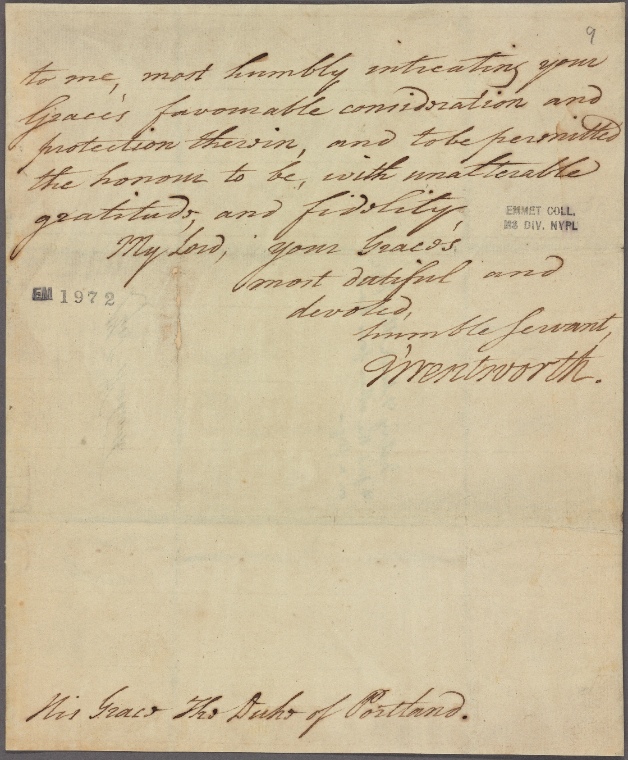 9
to me, most humbly intreating your
Grace's favourable consideration and
protection therein, and to be permitted
the honour to be, with unalterable
gratitude, and fidelity,
EMMET COLL.
MS DIV. NYPL
My Lord, your Grace's
most dutiful and
EM 1972
devoted,
humble Servant,
J Wentworth.
His Grace The Duke of Portland.